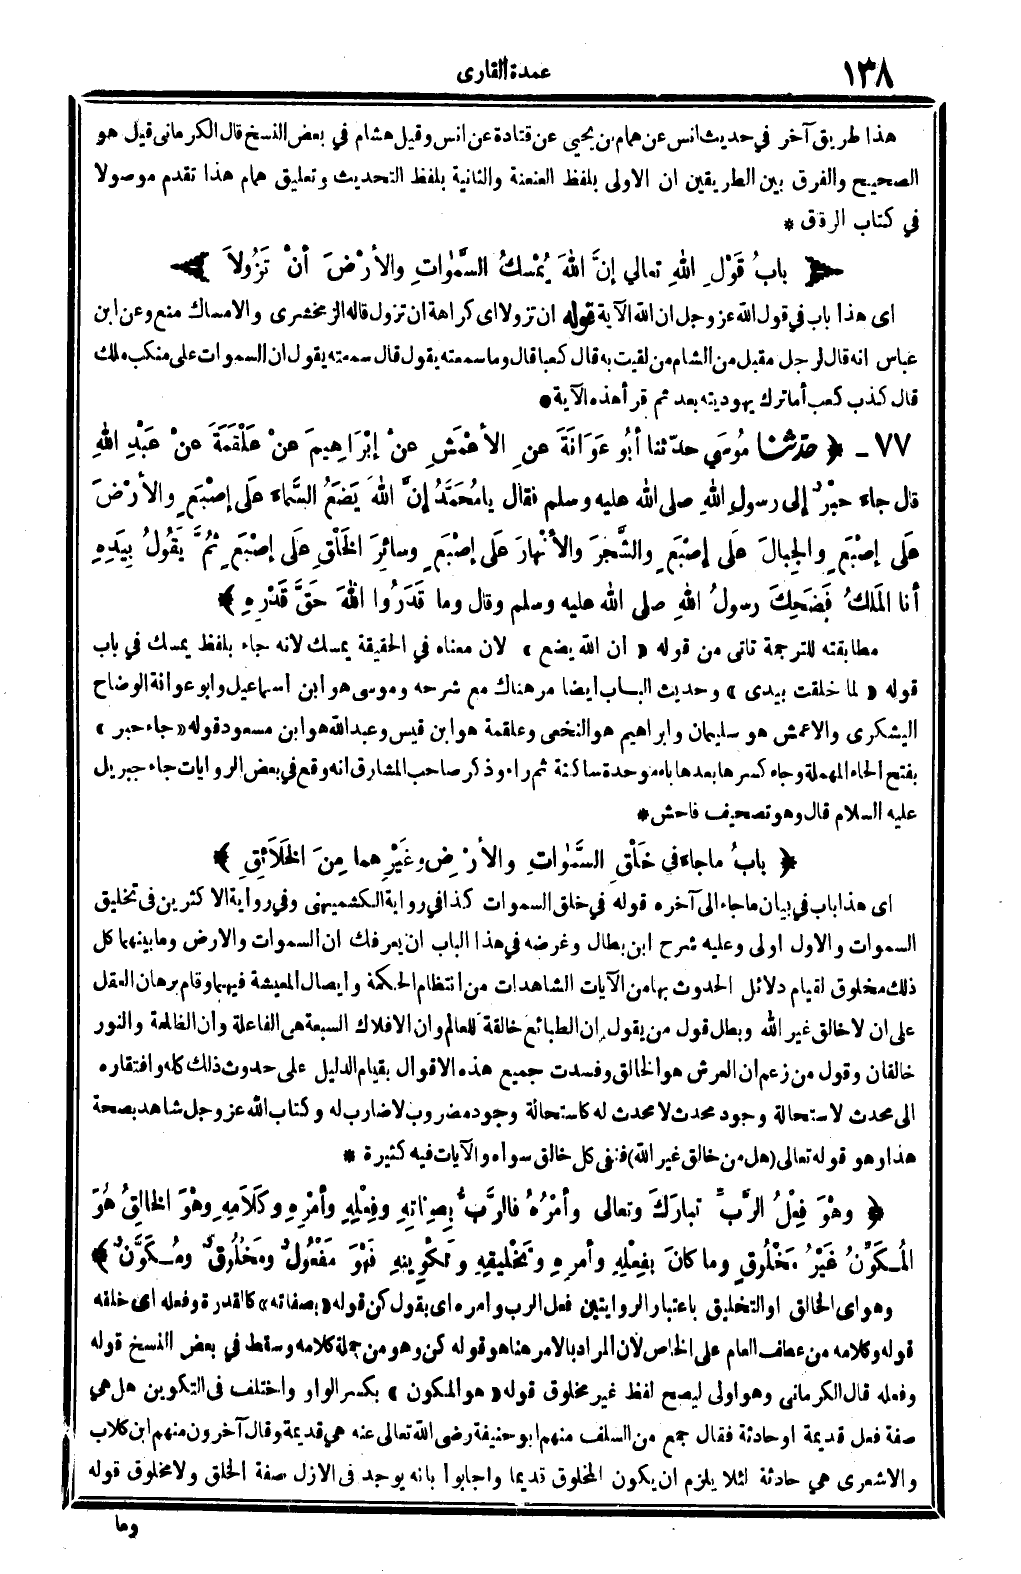 ١٣٨
عمدة القارى
هذا طريق آخر في حديث انس عن همام بن يحيي عن قتادة عن انس وقيل هشام في بعض النسخ قال الكرمانى قيل هو
الصحيح والفرق بين الطريقين ان الاولى بلفظ العنعنة والثانية بلفظ التحديث وتعليق همام هذا تقدم موصولا
في كتاب الرقاق *
﴿ بابُ قَوْلِ اللهِ تعالي إنَّ اللهَ يُمْسِكُ السَّمٰوَاتِ والأرْضَ أنْ تَزُولاَ ﴾
اى هذا باب في قول الله عز وجل ان الله الآية قوله ان تزولا اى كراهة ان تزول قاله الزمخشرى والامساك منع وعن ابن
عباس انه قال لرجل مقبل من الشام من لقيت به قال كعبا قال وما سمعته يقول قال سمعته يقول ان السموات على منكب ملك
قال كذب كعب أما ترك يهوديته بعد ثم قرأ هذه الآية *
٧٧ - ﴿ حدثنا مُوسَي حدثنا أبُو عَوَانَةَ عنِ الأعْمَشِ عنْ إبْرَاهِيمَ عنْ عَلْقَمَةَ عنْ عَبْدِ اللهِ
قال جاء حَبْرٌ إلى رسولِ اللهِ صلى الله عليه وسلم فقال يامُحَمَّدُ إنَّ اللهَ يَضَعُ السَّماءَ عَلَى إصْبَعٍ والأرْضَ
عَلَى إصْبَعٍ والجِبالَ عَلَى إصْبَعٍ والشَّجَرَ والأنْهارَ عَلَى إصْبَعٍ وسائِرَ الخَلْقِ عَلَى إصْبَعٍ ثُمَّ يَقُولُ بِيَدِهِ
أنا المَلِكُ فَضَحِكَ رسولُ اللهِ صلى الله عليه وسلم وقال وما قَدَرُوا اللهَ حَقَّ قَدْرِهِ ﴾
مطابقته للترجمة تاتى من قوله « ان الله يضع » لان معناه في الحقيقة يمسك لانه جاء بلفظ يمسك في باب
قوله « لما خلقت بيدى » وحديث الباب ايضا مر هناك مع شرحه وموسى هو ابن اسماعيل وابو عوانة الوضاح
اليشكرى والاعمش هو سليمان وابراهيم هو النخعى وعلقمة هو ابن قيس وعبد الله هو ابن مسعود قوله « جاء حبر »
بفتح الحاء المهملة وجاء كسرها بعدها باء موحدة ساكنة ثم راء وذكر صاحب المشارق انه وقع في بعض الروايات جاء جبريل
عليه السلام قال وهو تصحيف فاحش *
﴿ بابُ ماجاء في خَلْقِ السَّمَوٰاتِ والأرْضِ وغَيْرِهِما مِنَ الخَلَائِقِ ﴾
اى هذا باب في بيان ماجاء الى آخره قوله في خلق السموات كذا في رواية الكشميهنى وفي رواية الاكثرين فى تخليق
السموات والاول اولى وعليه شرح ابن بطال وغرضه في هذا الباب ان يعرفك ان السموات والارض وما بينهما كل
ذلك مخلوق لقيام دلائل الحدوث بها من الآيات الشاهدات من انتظام الحكمة وايصال المعيشة فيهما وقام برهان العقل
على ان لاخالق غير الله وبطل قول من يقول ان الطبائع خالقة للعالم وان الافلاك السبعة هى الفاعلة وأن الظلمة والنور
خالقان وقول من زعم ان العرش هو الخالق وفسدت جميع هذه الاقوال بقيام الدليل على حدوث ذلك كله وافتقاره
الى محدث لاستحالة وجود محدث لامحدث له كاستحالة وجود مضروب لاضارب له وكتاب الله عز وجل شاهد بصحة
هذا وهو قوله تعالى (هل من خالق غير الله) فنفى كل خالق سواه والآيات فيه كثيرة *
﴿ وهْوَ فِعْلُ الرَّبِّ تبارَكَ وتعالى وأمْرُهُ فالرَّبُّ بِصِفاتِهِ وفِعْلِهِ وأمْرِهِ وكَلَامِهِ وهْوَ الخالِقُ هُوَ
المُكَوِّنُ غَيْرُ مَخْلُوقٍ وما كانَ بِفِعْلِهِ وأمرِهِ وتَخْلِيقِهِ وتَكْوِينِهِ فَهْوَ مَفْعُولٌ ومَخْلُوقٌ ومُكَوَّنٌ ﴾
وهو اى الخالق او التخليق باعتبار الروايتين فعل الرب وامره اى بقول كن قوله « بصفاته » كالقدرة وفعله اى خلقه
قوله وكلامه من عطف العام على الخاص لان المراد بالامر هنا هو قوله كن وهو من جملة كلامه وسقط في بعض النسخ قوله
وفعله قال الكرمانى وهو اولى ليصح لفظ غير مخلوق قوله « هو المكون » بكسر الواو واختلف فى التكوين هل هي
صفة فعل قديمة او حادثة فقال جمع من السلف منهم ابو حنيفة رضى الله تعالى عنه هي قديمة وقال آخرون منهم ابن كلاب
والاشعرى هي حادثة لئلا يلزم ان يكون المخلوق قديما واجابوا بانه يوجد فى الازل صفة الخلق ولا مخلوق قوله
وما